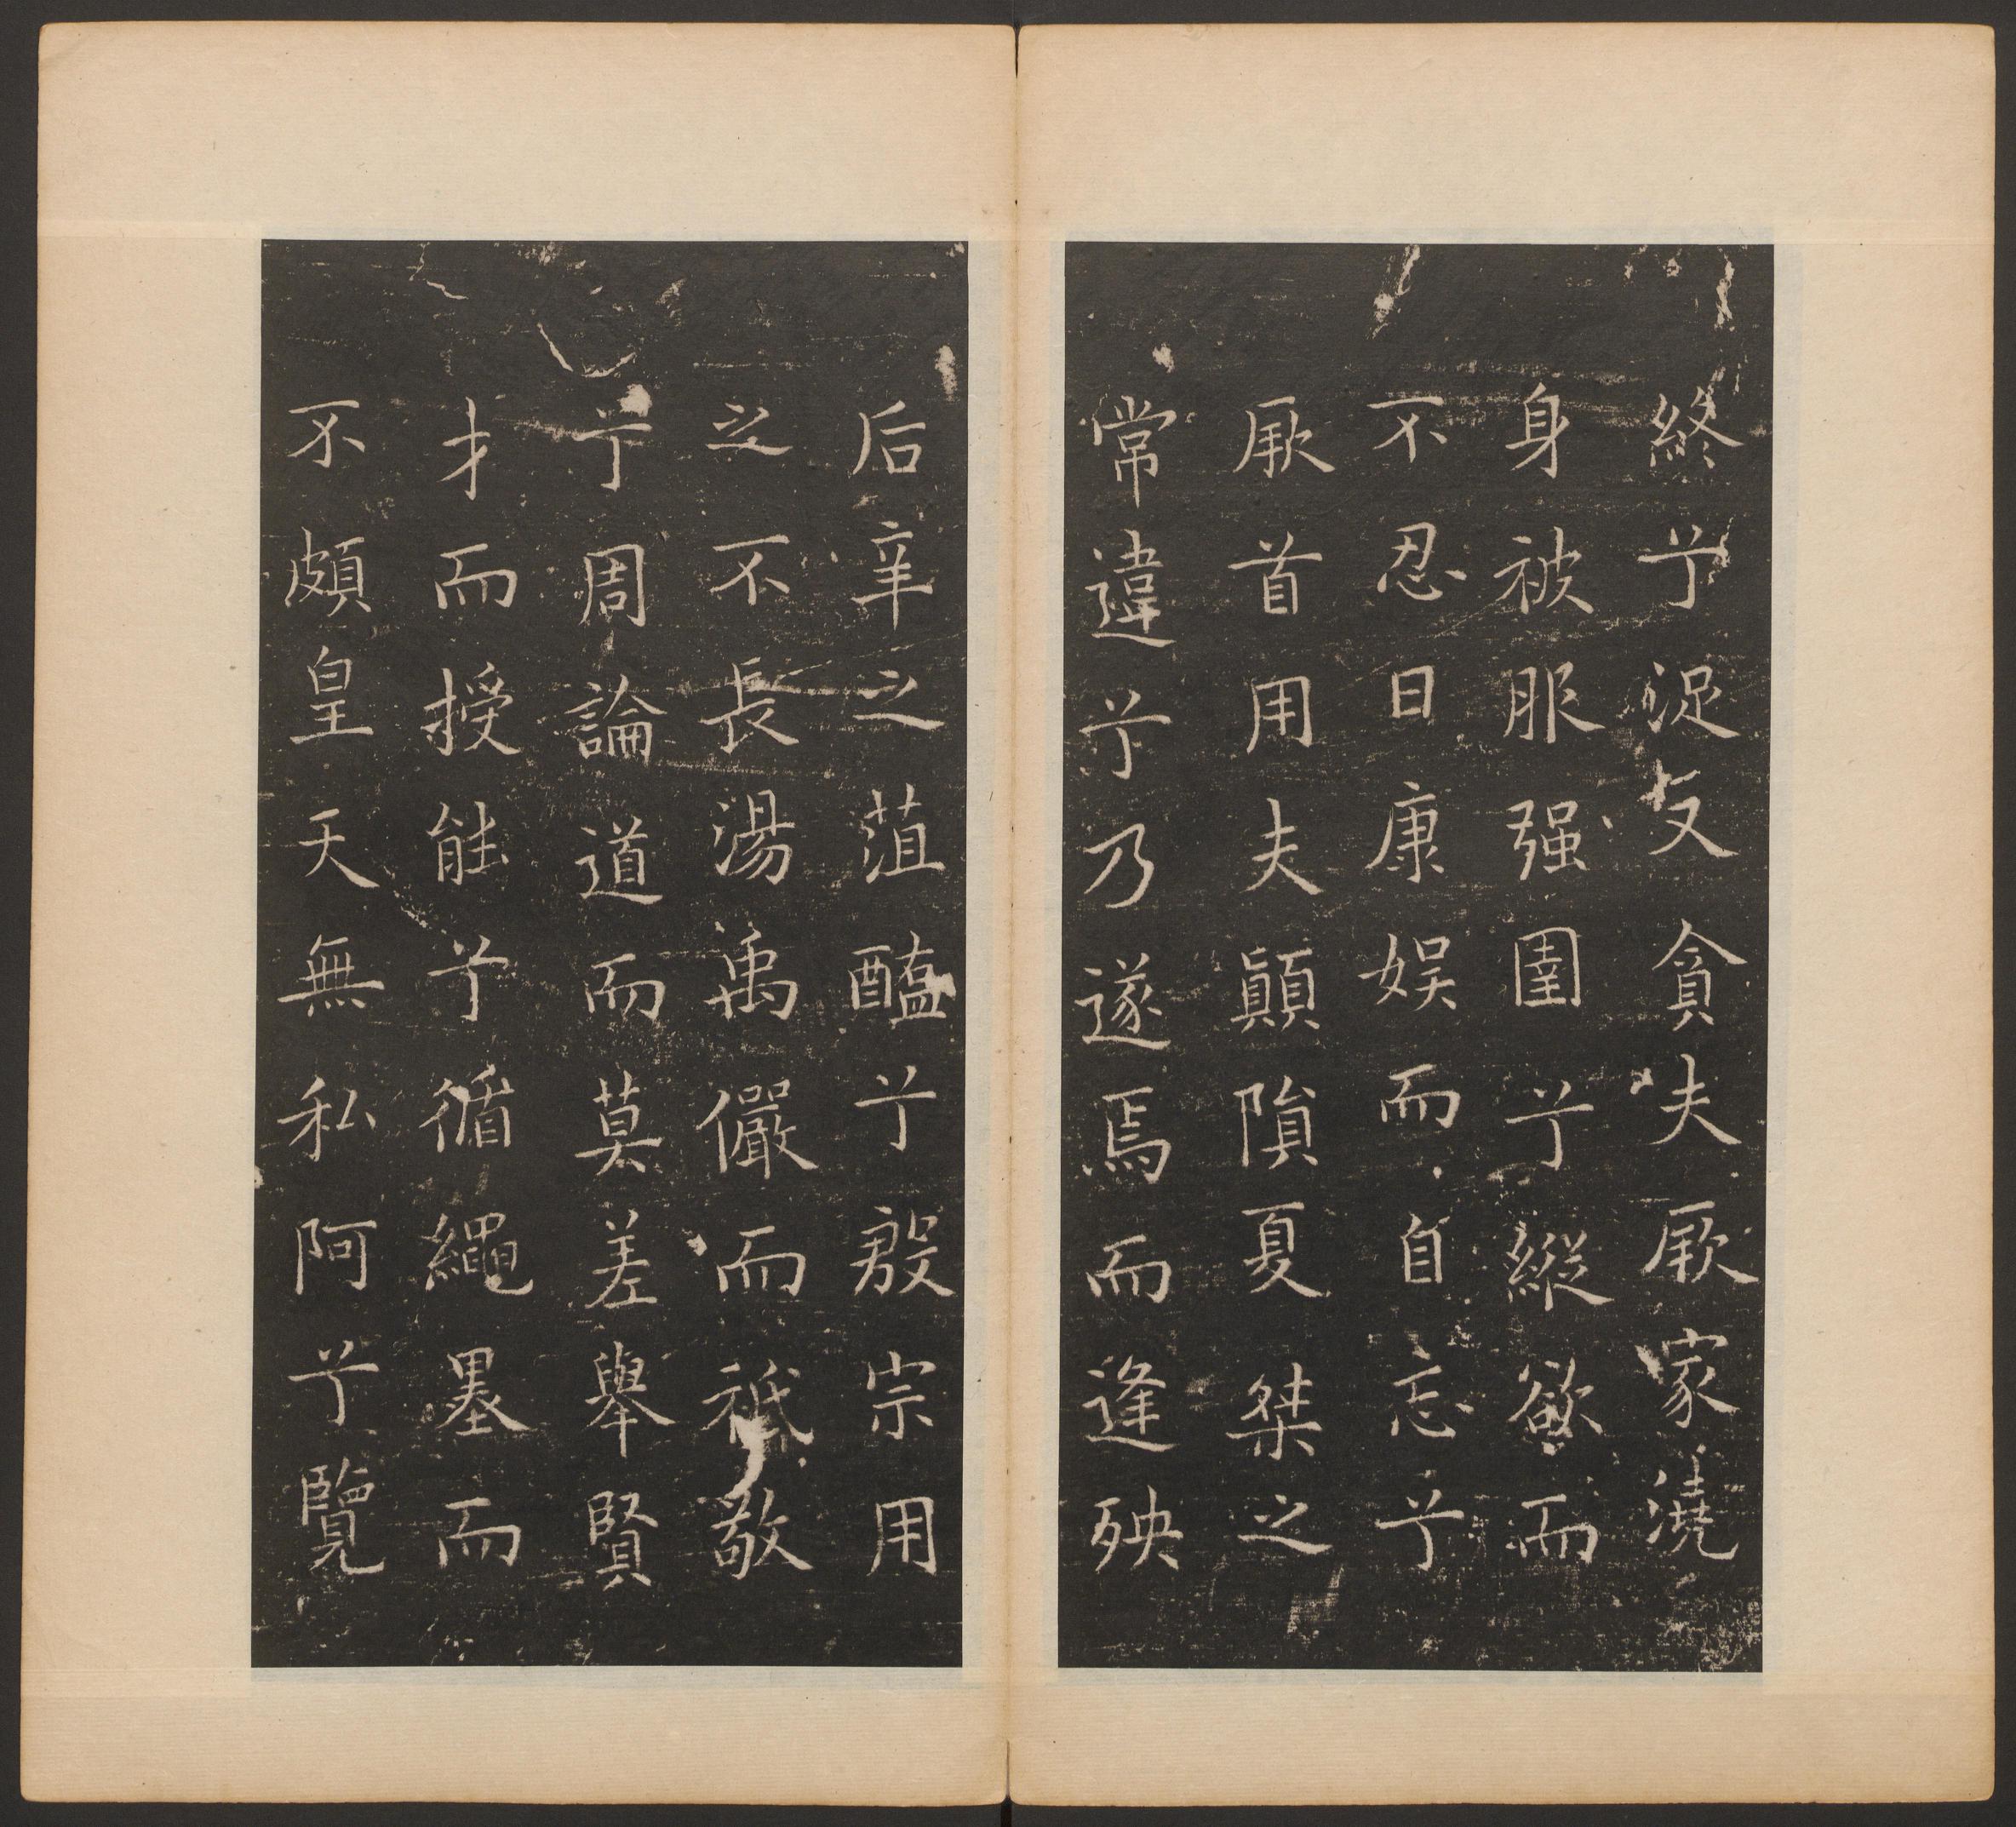 終兮浞又貪夫厥家澆
身被服强圉兮縱欲而
不忍日康娱而自忘兮
厥首用夫顛隕夏桀之
常違兮乃遂焉而逢殃
后辛之菹醢兮殷宗用
之不長湯禹儼而祗敬
兮周論道而莫差舉賢
才而授能兮循繩墨而
不頗皇天無私阿兮覽